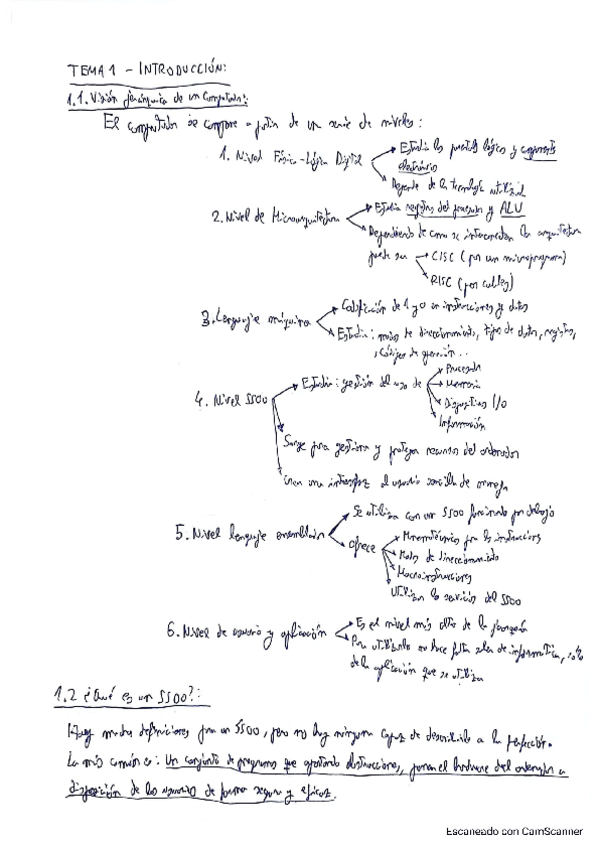 TEMA 1 - INTRODUCCIÓN:
1.1. Visión jerárquica de un computador:
El computador se compone a partir de un serie de niveles:
1. Nivel Físico-Lógico Digital
Estudia las puertas lógicas y components
electrónicos
Depende de la tecnología utilizada
2. Nivel de Microarquitectura
Estudia registros del procesador y ALU
Dependiendo de como se interconectan la arquitectura
puede ser
CISC (por un microprograma)
RISC (por cables)
3. Lenguaje máquina
Codificación de 1 y 0 en instrucciones y datos
Estudia: modos de direccionamiento, tipos de datos, registros,
códigos de operación...
4. Nivel SSOO
Estudia: gestión del uso de
Procesador
Memoria
Dispositivos I/O
Información
Surge para gestionar y proteger recursos del ordenador
Crea una interfaz al usuario sencilla de manejar
5. Nivel lenguaje ensamblador
Se utiliza con un SSOO funcionando por debajo
ofrece
Mnemotécnicos para las instrucciones
Modos de direccionamiento
Macroinstrucciones
Utilizan los servicios del SSOO
6. Nivel de usuario y aplicación
Es el nivel más alto de la jerarquía
Para utilizarlo no hace falta saber de informática, solo
de la aplicación que se utiliza
1.2 ¿Qué es un SSOO?:
Hay muchas definiciones para un SSOO, pero no hay ninguna capaz de describirlo a la perfección.
La más común es: Un conjunto de programas que aportando abstracciones, ponen el hardware del ordenador a
disposición de los usuarios de forma segura y eficaz.
Escaneado con CamScanner